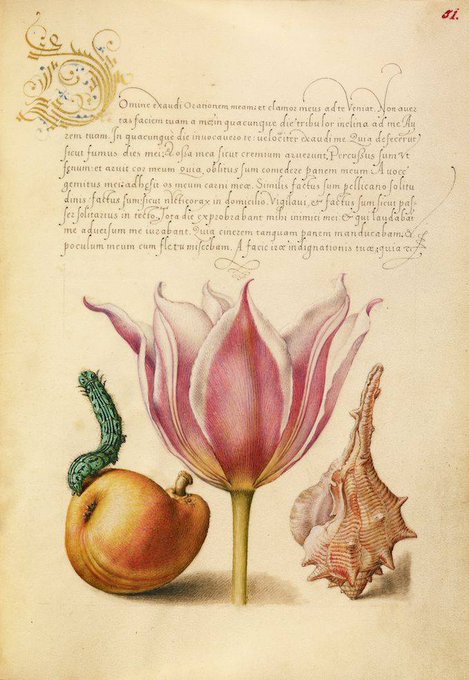 51.
Domine exaudi Orationem meam: et clamor meus ad te Veniat. Non aver
tas faciem tuam a me: in quacunque die tribulor inclina ad me Au
rem tuam. In quacunque die invocavero te: velociter exaudi me. Quia defecerūt
sicut fumus dies mei: & ossa mea sicut cremium aruerunt. Percussus sum Vt
fenum: et aruit cor meum Quia oblitus sum comedere panem meum. A voce
gemitus mei: adhesit os meum carni meæ. Similis factus sum pellicano solitu
dinis factus sum: sicut nicticorax in domicilio. Vigilavi, et factus sum sicut pas
ser solitarius in tecto. Tota die exprobrabant mihi inimici mei: & qui laudabāt
me adversum me iurabant. Quia cinerem tanquam panem manducabam. &
poculum meum cum fletu miscebam. A facie iræ indignationis tuæ: quia e